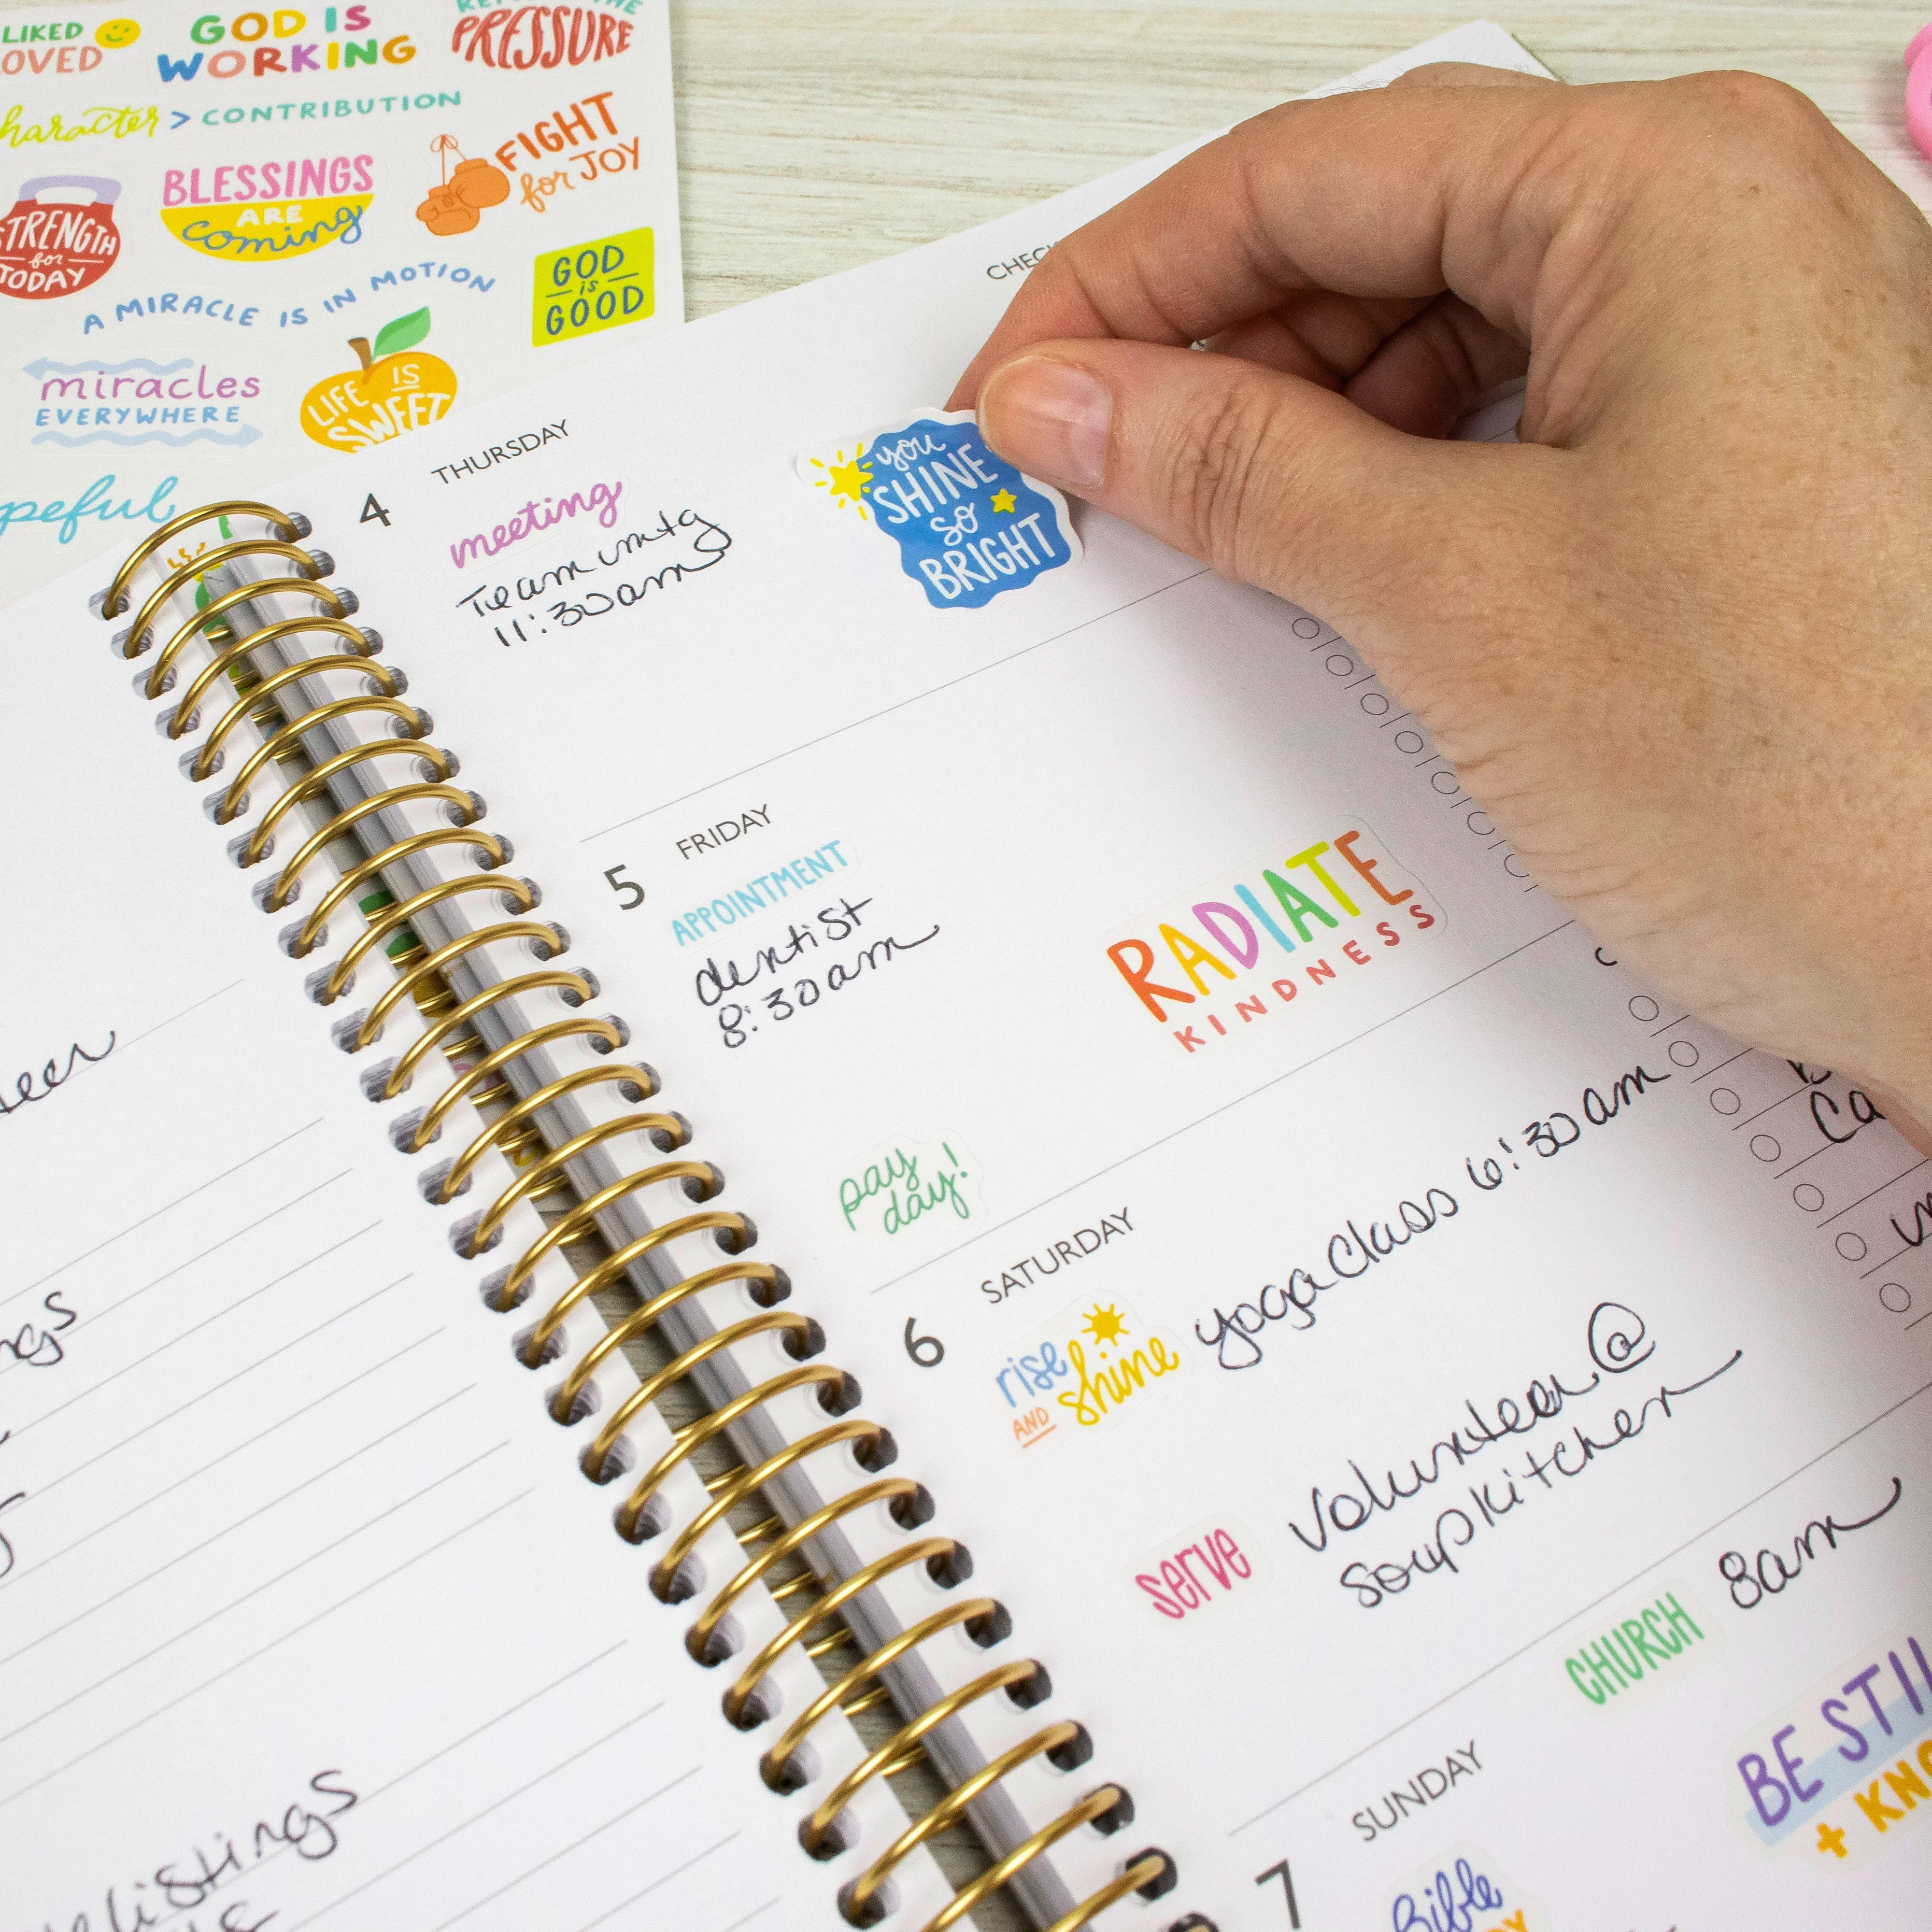 LIKED
OVED
GOD IS
WORKING
THE
PRESSURE
haracter > CONTRIBUTION
STRENGTH
for
TODAY
BLESSINGS
ARE
coming
FIGHT
for JOY
A MIRACLE IS IN MOTION
GOD
is
GOOD
miracles
EVERYWHERE
LIFE IS
SWEET
peful
CHEC
THURSDAY
4
meeting
Team mtg
11:30am
you
SHINE
so
BRIGHT
FRIDAY
5
APPOINTMENT
dentist
8:30am
RADIATE
KINDNESS
pay
day!
SATURDAY
6
rise
AND
shine
yoga class 6:30am
serve
Volunteer @
soup kitchen
CHURCH
8am
SUNDAY
7
BE STIL
+ KNO
Bible
Ca
teer
ngs
listings